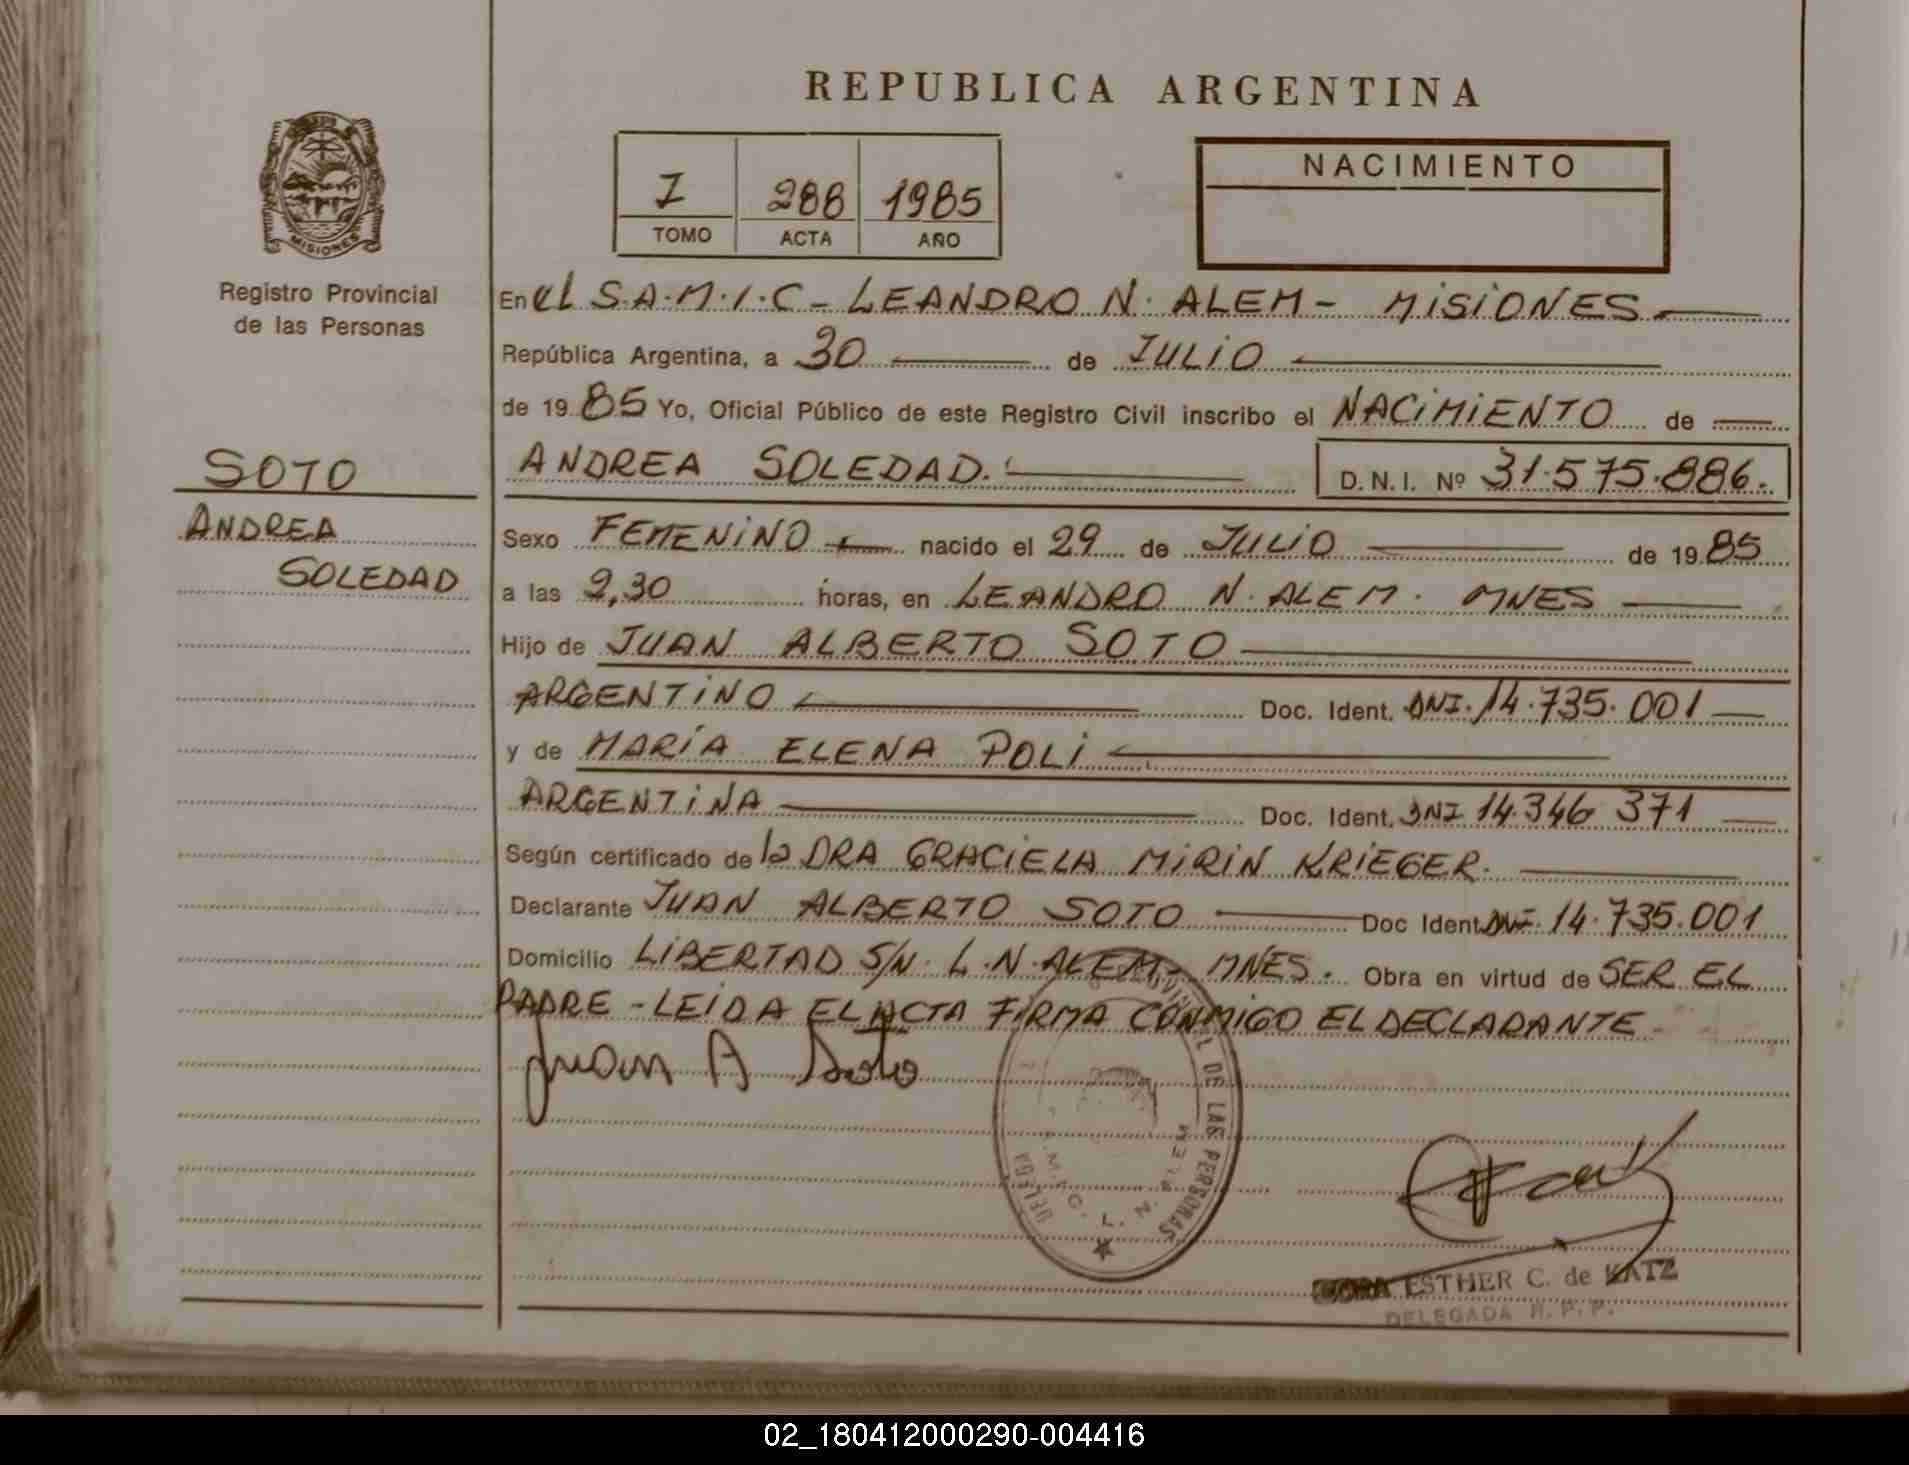 REPUBLICA ARGENTINA
I 288 1985
TOMO ACTA AÑO
NACIMIENTO
MISIONES
Registro Provincial
de las Personas
SOTO
ANDREA
SOLEDAD
En el S.A.M.I.C - LEANDRO N. ALEM - MISIONES
República Argentina, a 30 de JULIO
de 1985 Yo, Oficial Público de este Registro Civil inscribo el NACIMIENTO de
ANDREA SOLEDAD. D.N.I. Nº 31.575.886.
Sexo FEMENINO nacido el 29 de JULIO de 1985
a las 2,30 horas, en LEANDRO N. ALEM. MNES
Hijo de JUAN ALBERTO SOTO
ARGENTINO Doc. Ident. DNI. 14.735.001
y de MARÍA ELENA POLI
ARGENTINA Doc. Ident. DNI 14.346 371
Según certificado de la DRA GRACIELA MIRIN KRIEGER.
Declarante JUAN ALBERTO SOTO Doc Ident DNI. 14.735.001
Domicilio LIBERTAD S/N. L.N. ALEM - MNES. Obra en virtud de SER EL
PADRE - LEIDA EL ACTA FIRMA CONMIGO EL DECLARANTE
Juan A Soto
DE LAS PERSONAS
L. N. ALEM
ESTHER C. de KATZ
DELEGADA R.P.P.
02_180412000290-004416